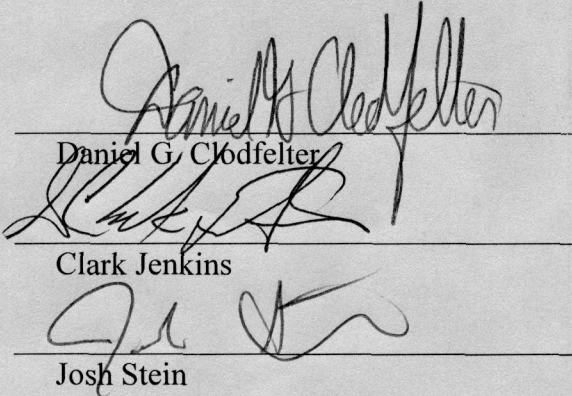 Daniel G Clodfelter
Daniel G. Clodfelter
Clark Jenkins
Josh Stein